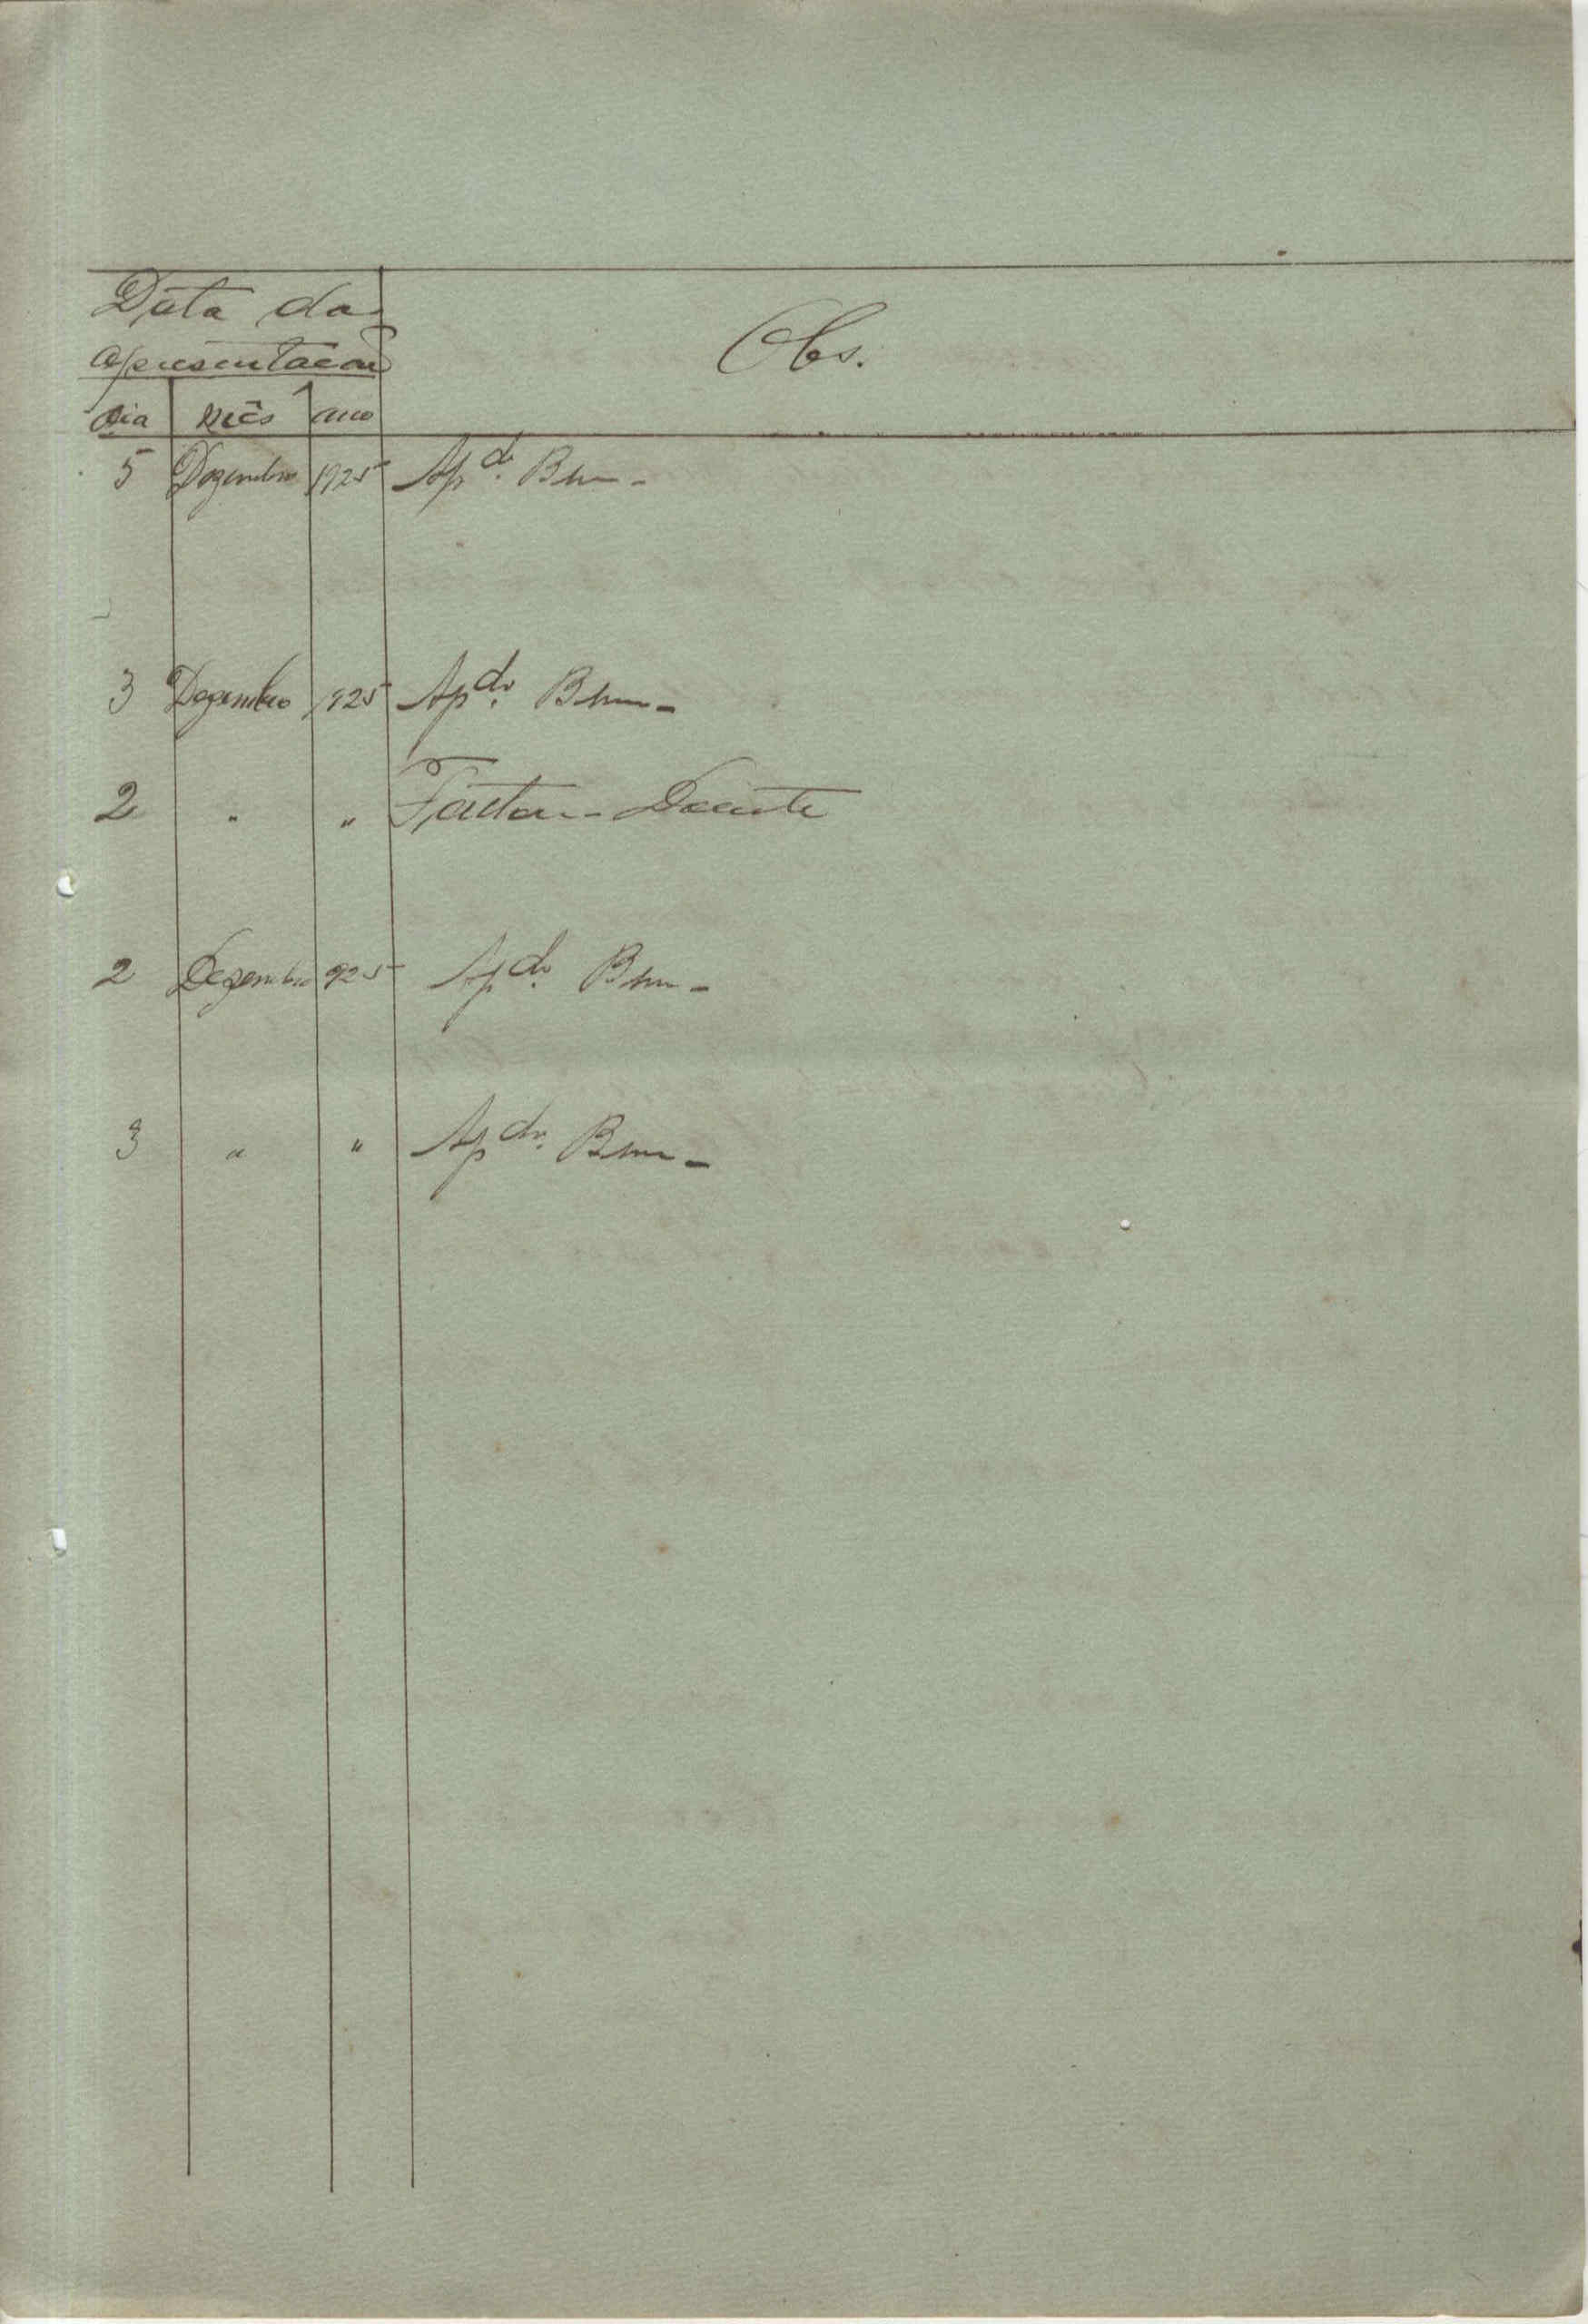 Data da
apresentação
Obs.
dia mês ano
5 Dezembro 1925 Apdo. Bem-
3 Dezembro 1925 Apdo. Bem-
2 " " Faltou - Doente
2 Dezembro 925 Apdo. Bem-
3 " " Apdo. Bem-